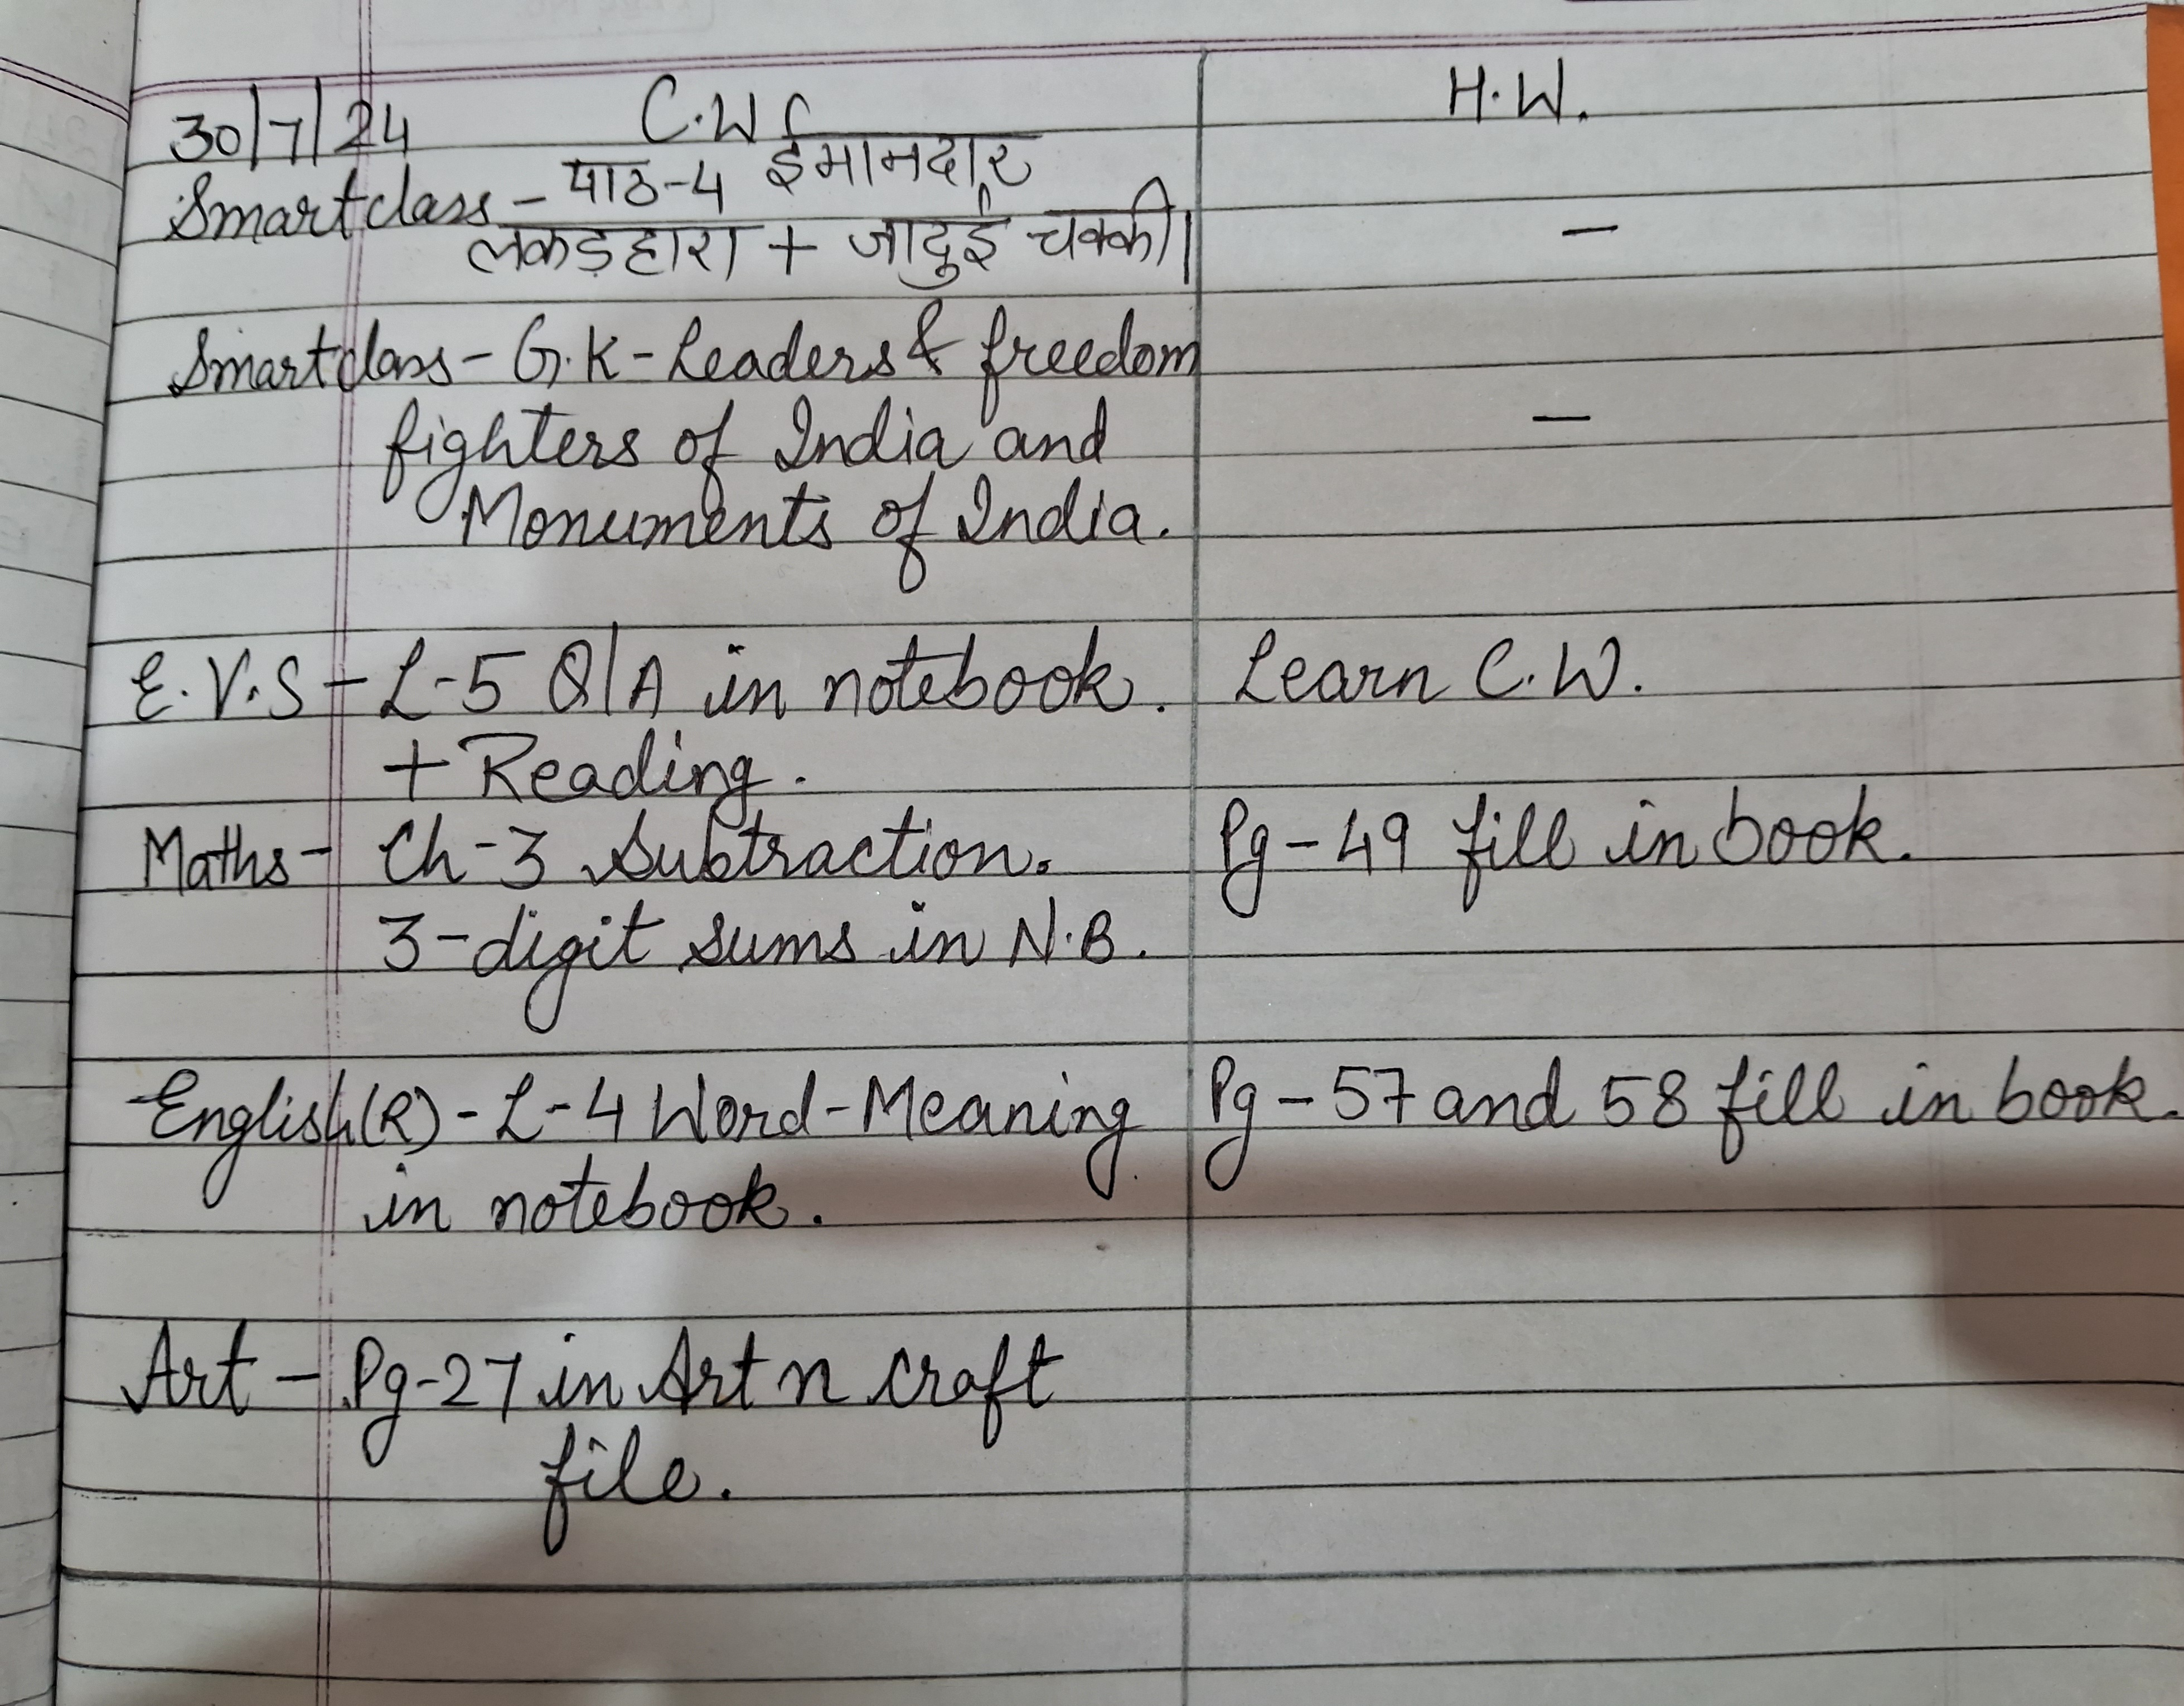 30/7/24 C.W H.W.
Smartclass - पाठ-4 ईमानदार
लकड़हारा + जादुई चक्की। -
Smartclass - G.K - Leaders & freedom
fighters of India and -
Monuments of India.
E.V.S - L-5 Q/A in notebook. Learn C.W.
+ Reading.
Maths - Ch-3 Subtraction. Pg - 49 fill in book.
3-digit sums in N.B.
English(R) - L-4 Word-Meaning Pg - 57 and 58 fill in book.
in notebook.
Art - Pg-27 in Art n craft
file.